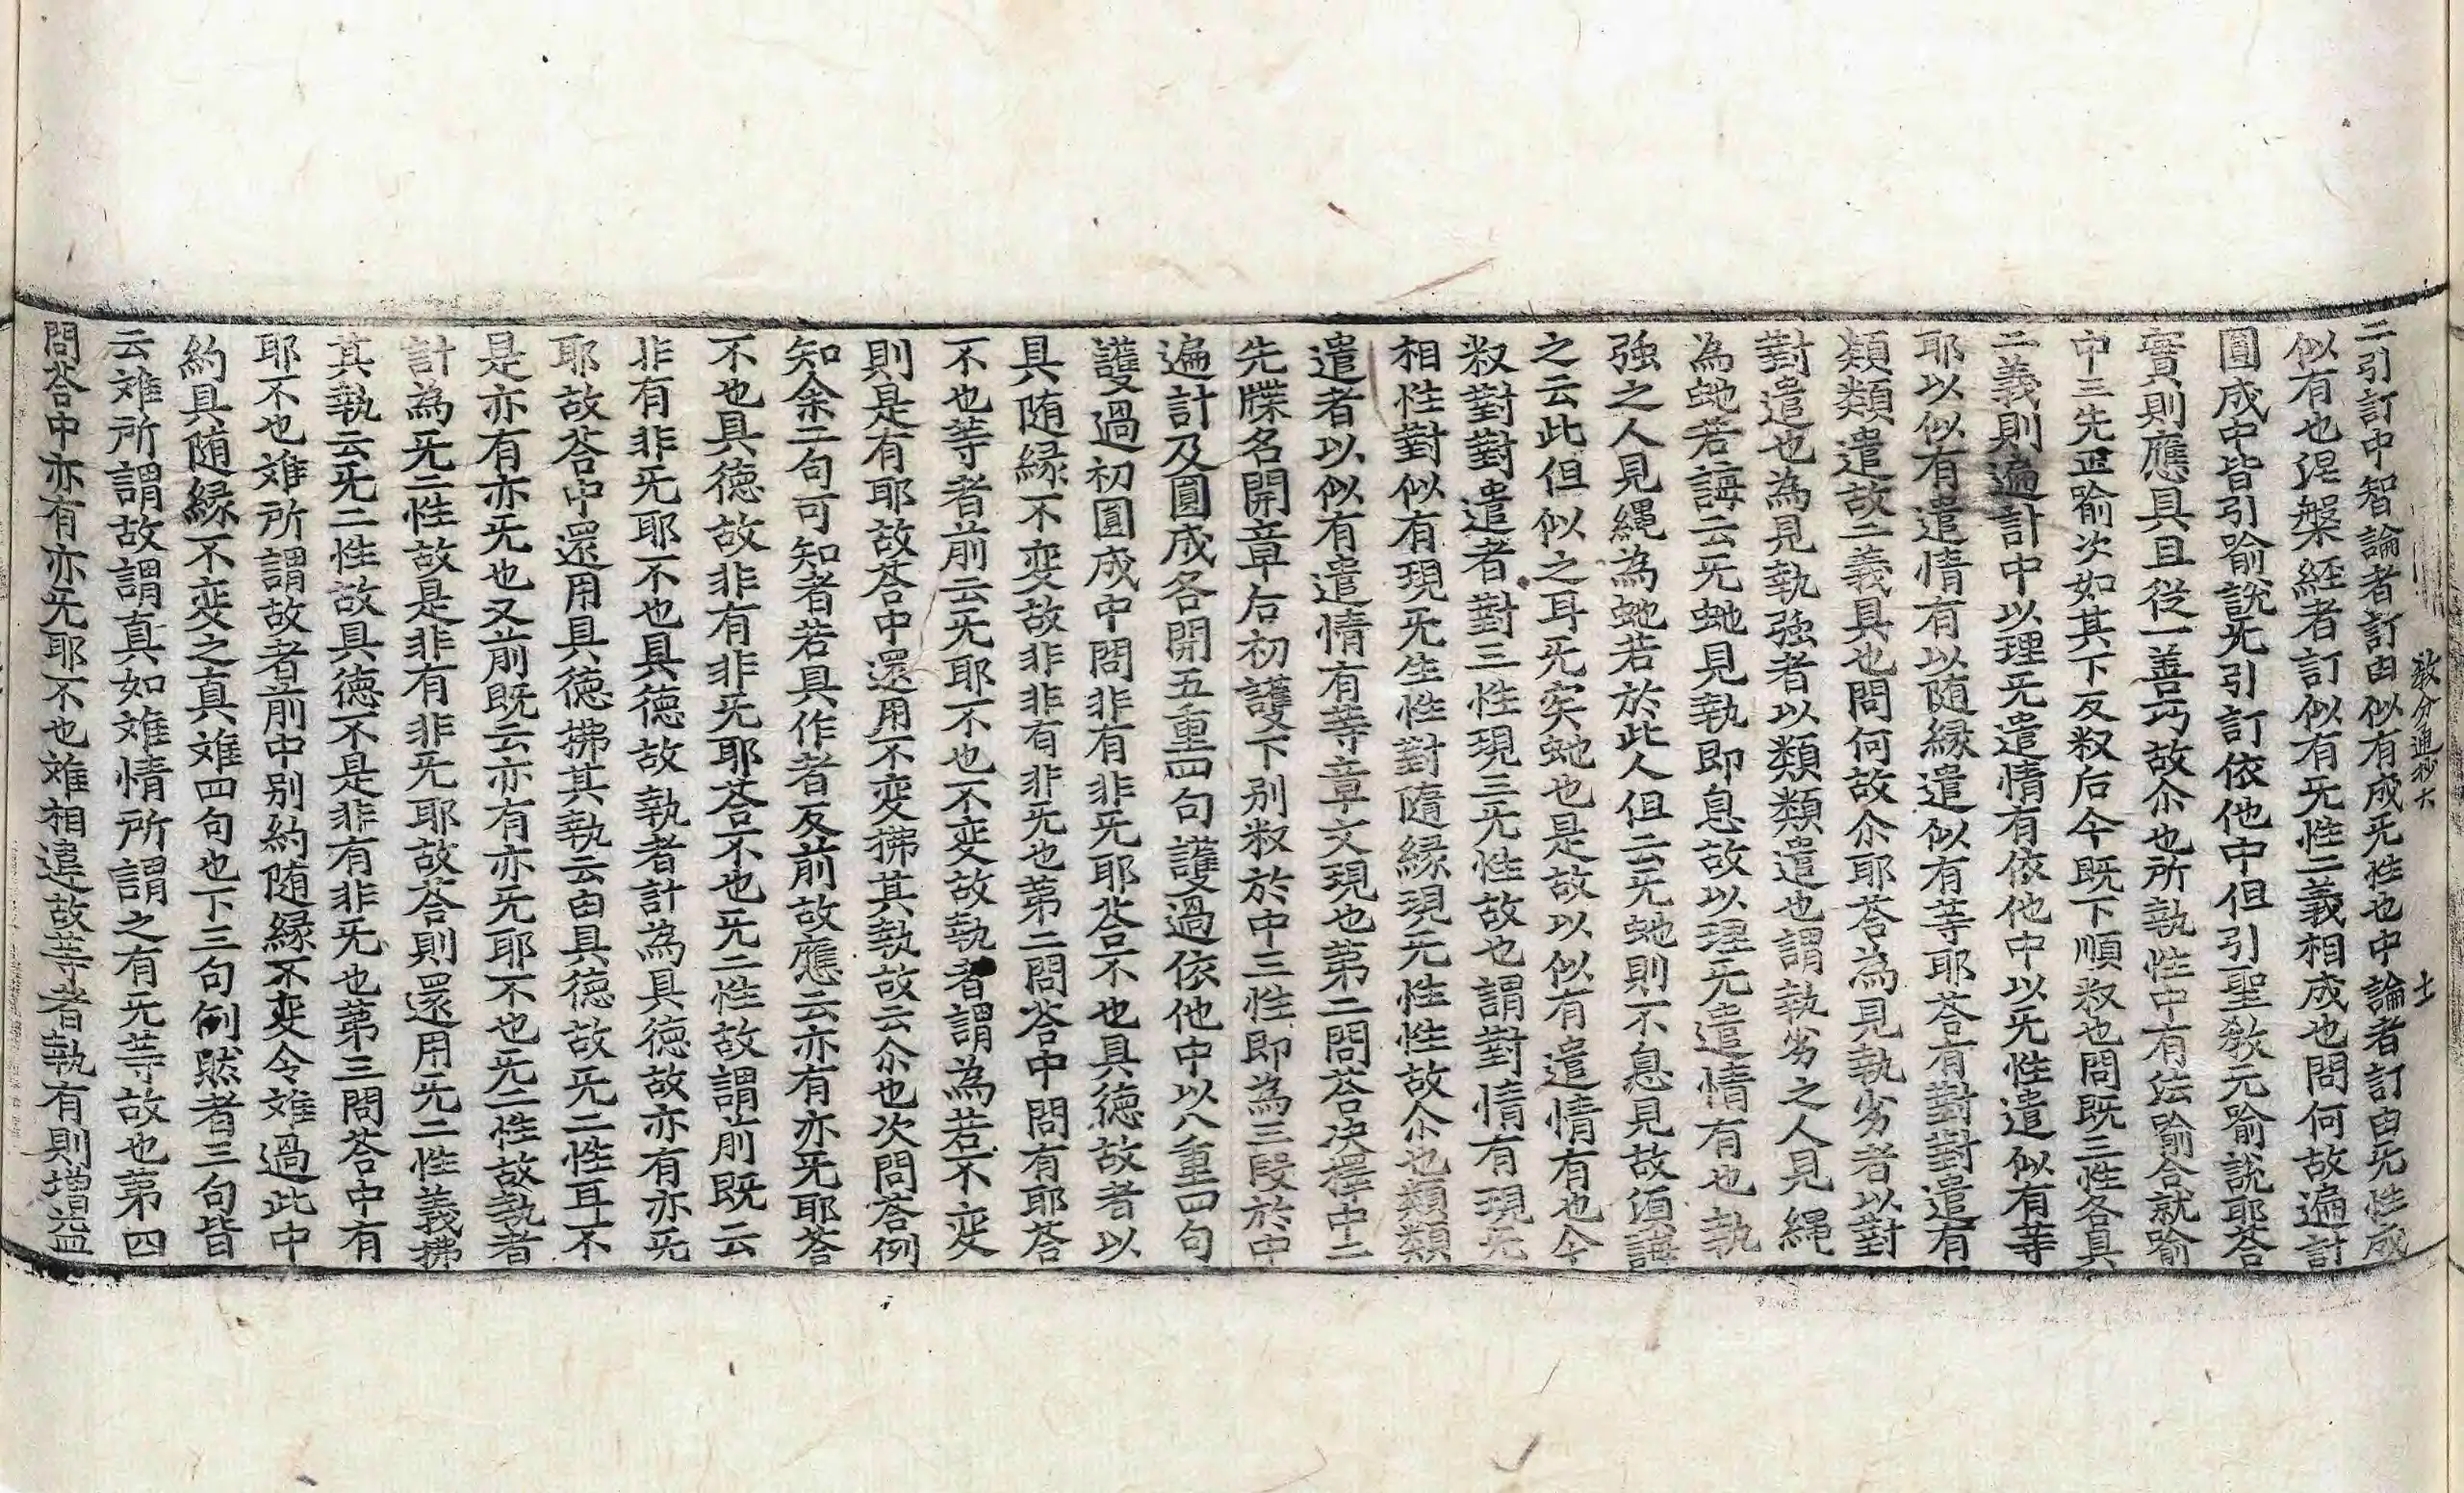 教分通抄六　十
二引訂中智論者訂由似有成旡性也中論者訂由旡性成
似有也涅槃経者訂似有旡性二義相成也問何故遍計
圓成中皆引喻說旡引訂依他中但引聖敎元喻說耶荅
實則應具且從一善巧故尒也所執性中有法喻合就喻
中三先正喻次如其下反釈后今既下順釈也問既三性各具
二義則遍計中以理旡遣情有依他中以旡性遣似有等
耶以似有遣情有以随縁遣似有等耶荅有對對遣有
類類遣故二義具也問何故尒耶荅為見執劣者以對
對遣也為見執強者以類類遣也謂執劣之人見縄
為虵若誨云旡虵見執即息故以理旡遣情有也執
強之人見縄為虵若於此人但云旡虵則不息見故須誨
之云此但似之耳旡实虵也是故以似有遣情有也今
釈對對遣者對三性現三旡性故也謂對情有現旡
相性對似有現旡生性對隨縁現旡性性故尒也類類
遣者以似有遣情有等章文現也第二問荅决擇中二
先牒名開章后初護下別釈於中三性即為三段於中
遍計及圓成各開五重四句護過依他中以八重四句
護過初圓成中問非有非旡耶荅不也具德故者以
具随縁不变故非非有非旡也第二問荅中問有耶荅
不也等者前云旡耶不也不变故執者謂為若不变
則是有耶故荅中還用不变拂其執故云尒也次問荅例
知余二句可知者若具作者反前故應云亦有亦旡耶荅
不也具徳故非有非旡耶荅不也旡二性故謂前既云
非有非旡耶不也具徳故執者計為具徳故亦有亦旡
耶故荅中還用具徳拂其執云由具徳故旡二性耳不
是亦有亦旡也又前既云亦有亦旡耶不也旡二性故執者
計為旡二性故是非有非旡耶故荅則還用旡二性義拂
其執云旡二性故具徳不是非有非旡也第三問荅中有
耶不也雖所謂故者前中別約随縁不变令雖過此中
約具随縁不变之真雖四句也下三句例然者三句皆
云雖所謂故謂真如雖情所謂之有旡等故也第四
問荅中亦有亦旡耶不也雖相違故等者執有則増益